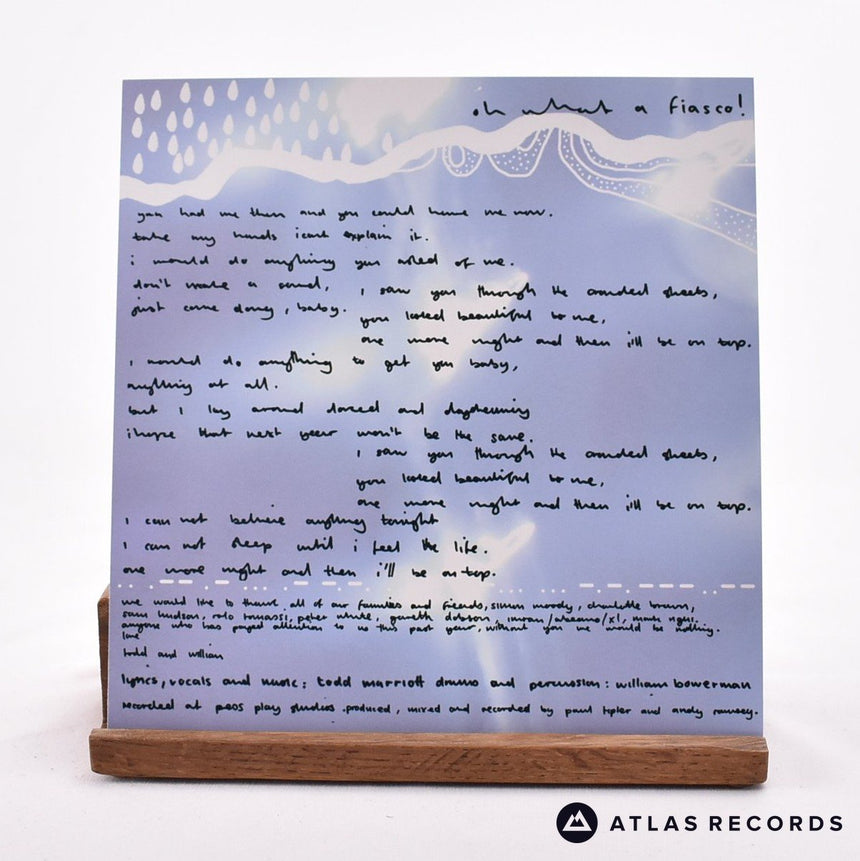 oh what a fiasco!
you had me then and you could have me now.
take my hands i cant explain it.
i would do anything you asked of me.
don't make a sound,
just come along, baby.
i saw you through the crowded streets,
you looked beautiful to me,
one more night and then i'll be on top.
i would do anything to get you baby,
anything at all.
but i lay around dazed and daydreaming
i hope that next year won't be the same.
i saw you through the crowded streets,
you looked beautiful to me,
one more night and then i'll be on top.
i can not believe anything tonight
i can not sleep until i feel the life.
one more night and then i'll be on top.
we would like to thank all of our families and friends, simon moody, charlotte brown,
sam hudson, rolo tomassi, peter white, gareth dobson, imran/ /xl, mark
anyone who has payed attention to us this past year, without you we would be nothing.
love
todd and william
lyrics, vocals and music; todd marriott drums and percussion: william bowerman
recorded at press play studios .produced, mixed and recorded by paul tipler and andy ramsey.
ATLAS RECORDS